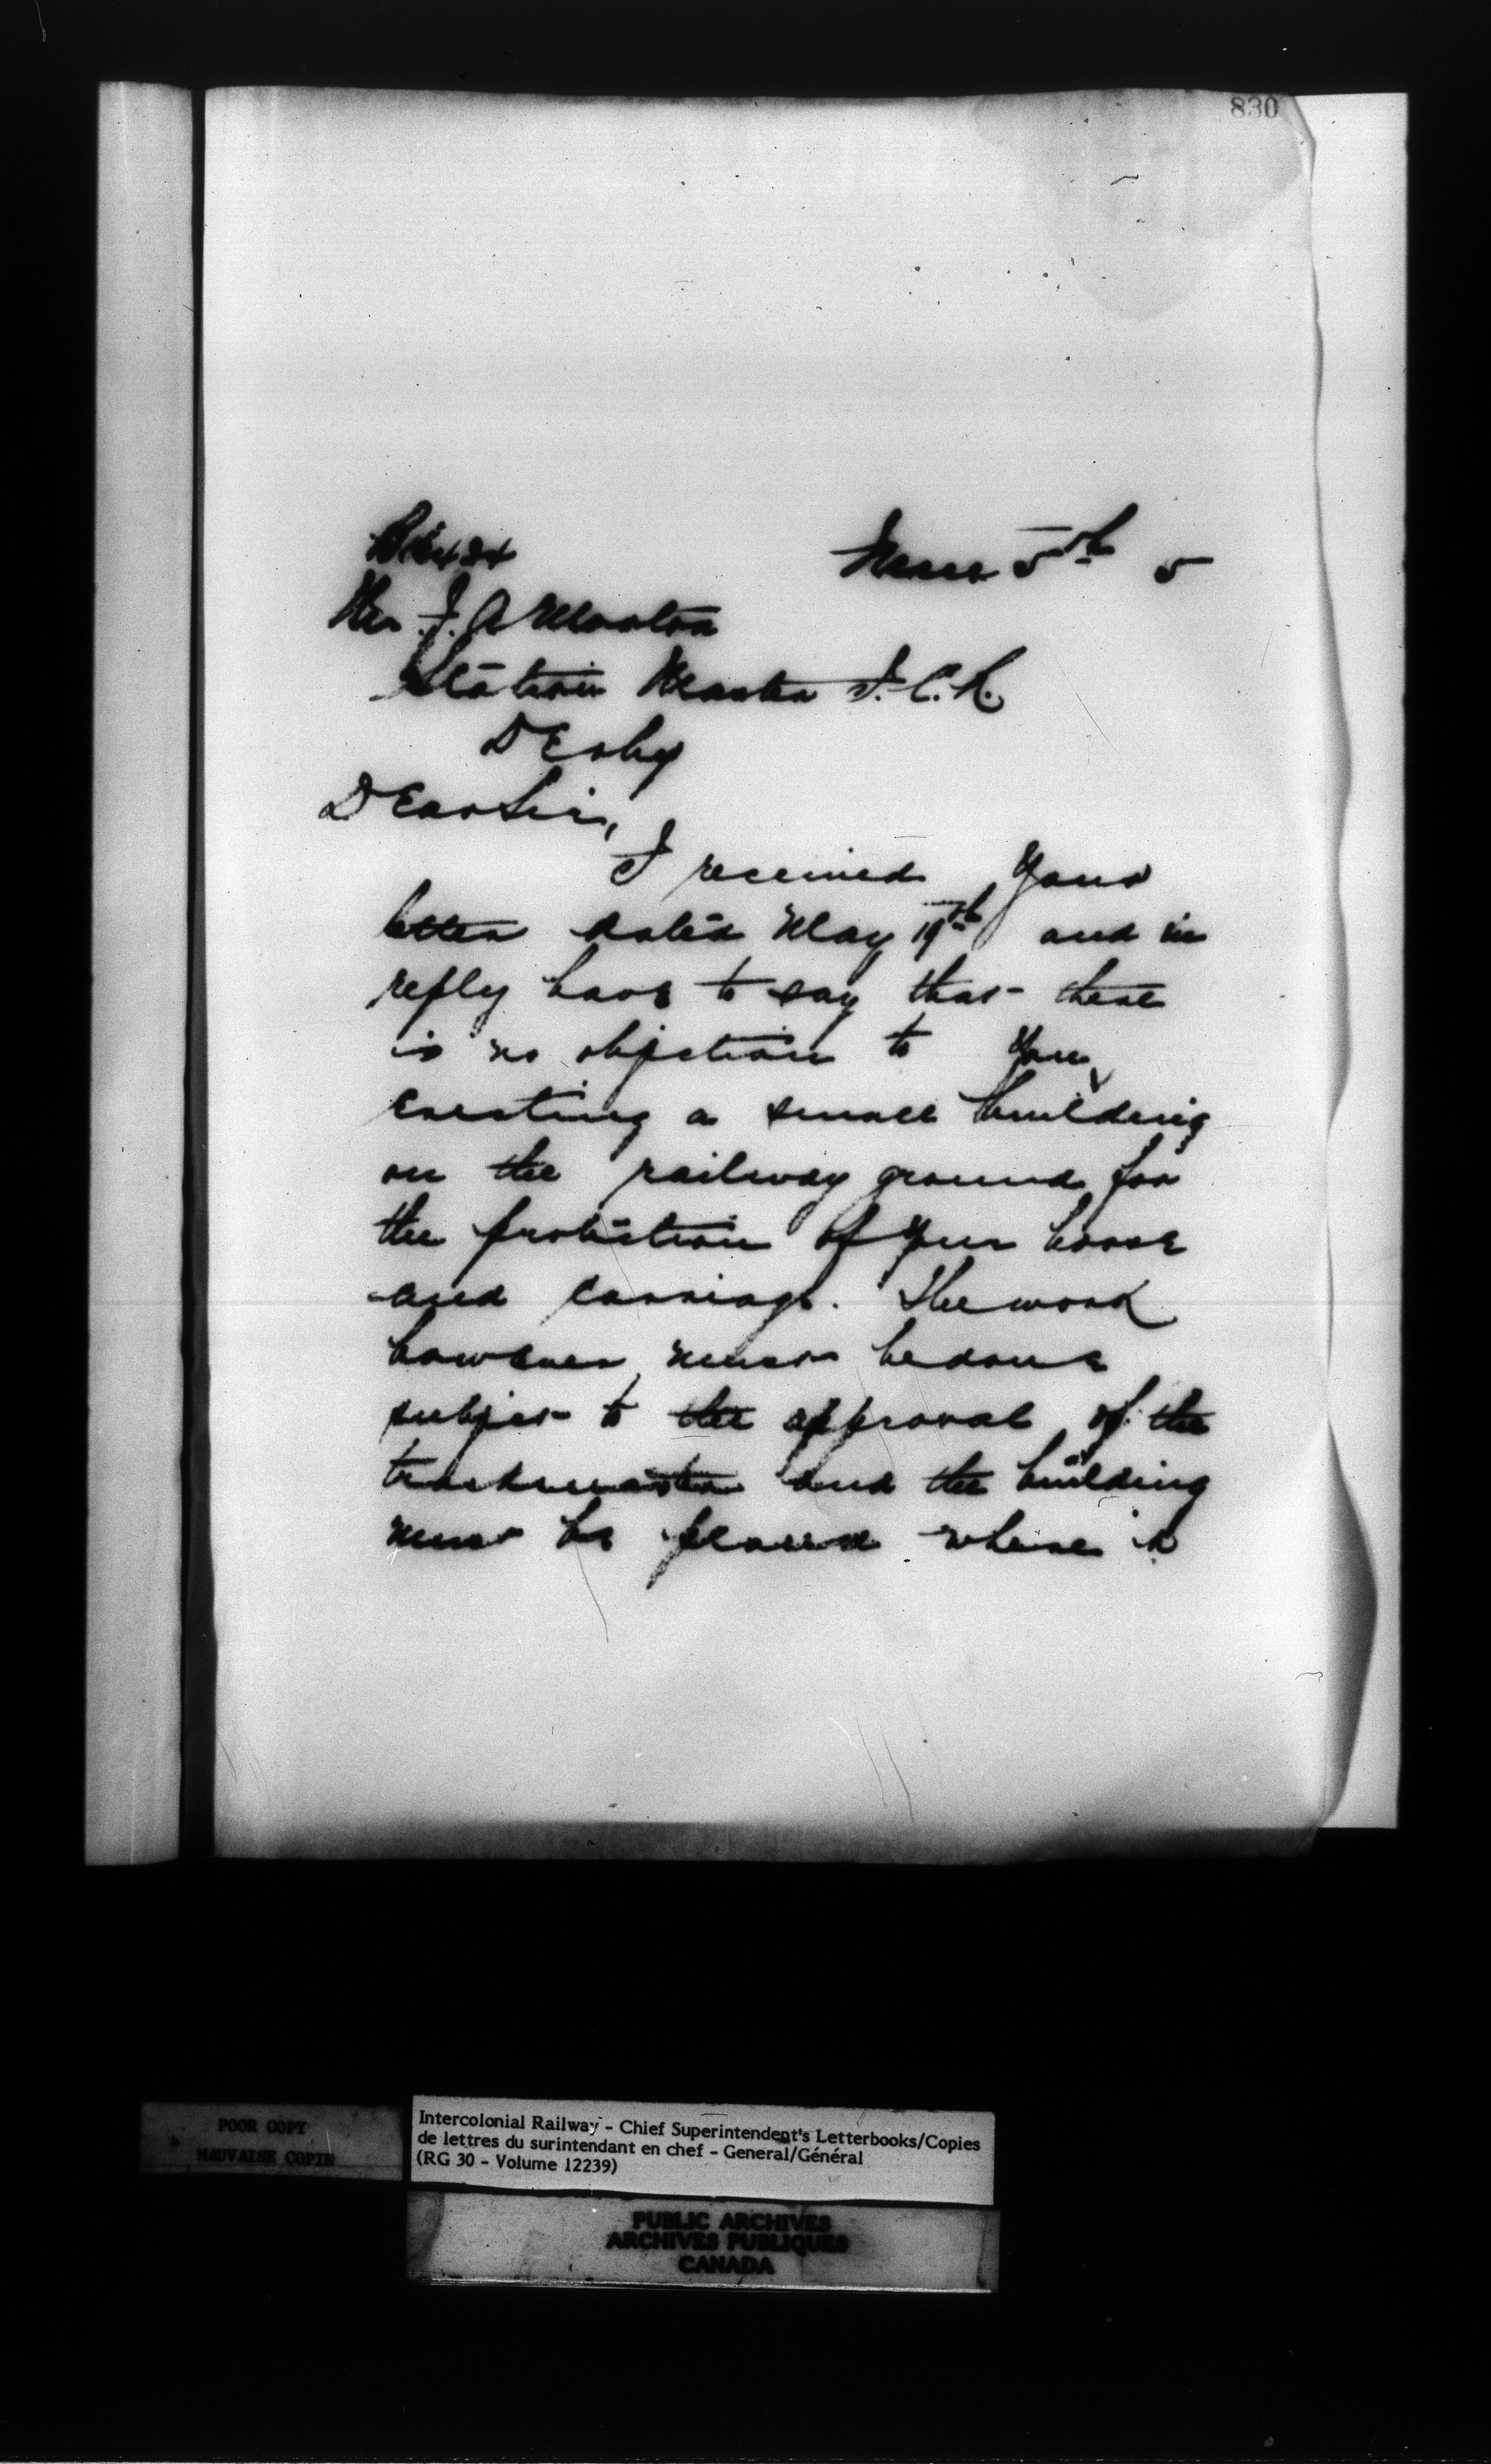 830
June 5th 5
Mr. J. A. Moorton
Station Master I. C. R.
Derby
Dear Sir,
I received your
letter dated May 19th and in
reply have to say that there
is no objection to you
erecting a small building
on the railway ground for
the protection of your horse
and carriage. The work
however must be done
subject to the approval of the
trackmaster and the building
must be placed where it
POOR COPY
MAUVAISE COPIE
Intercolonial Railway - Chief Superintendent's Letterbooks/Copies
de lettres du surintendant en chef - General/Général
(RG 30 - Volume 12239)
PUBLIC ARCHIVES
ARCHIVES PUBLIQUES
CANADA